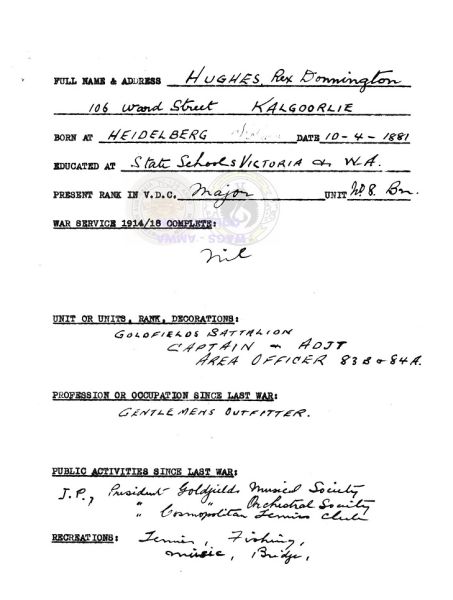 FULL NAME & ADDRESS HUGHES, Rex Donnington
106 Ward Street KALGOORLIE
BORN AT HEIDELBERG DATE 10-4-1881
EDUCATED AT State Schools VICTORIA & W.A.
PRESENT RANK IN V.D.C. Major UNIT No 8. Bn.
WAR SERVICE 1914/18 COMPLETE:
nil
UNIT OR UNITS, RANK, DECORATIONS:
GOLDFIELDS BATTALION
CAPTAIN - ADJT
AREA OFFICER 83B & 84A.
PROFESSION OR OCCUPATION SINCE LAST WAR:
GENTLEMENS OUTFITTER.
PUBLIC ACTIVITIES SINCE LAST WAR:
J.P., President Goldfields Musical Society
" Orchestral Society
" Cosmopolitan Tennis Club
RECREATIONS: Tennis, Fishing,
music, Bridge,